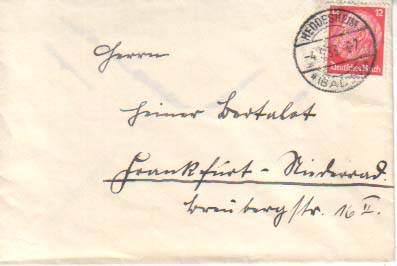 Herrn
Heiner Bertalot
Frankfurt - Niederrad.
Breubergstr. 16 II.
HEDDESHEIM
(BAD.)
12
Deutsches Reich